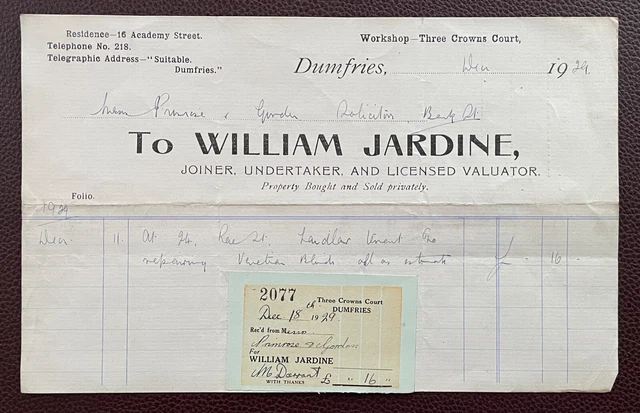 Residence—16 Academy Street.
Telephone No. 218.
Telegraphic Address—"Suitable.
Dumfries."
Workshop—Three Crowns Court,
Dumfries, Dec 1929.
Primrose & Gordon Solicitors, Bank St.
To WILLIAM JARDINE,
JOINER, UNDERTAKER, AND LICENSED VALUATOR.
Property Bought and Sold privately.
Folio.
1929
Dec. 11. At 24, Rae St.
repairing Venetian Blinds all as estimate £ " 16 "
2077
Three Crowns Court
DUMFRIES
Dec 18th 1929
Rec'd from Messrs
Primrose & Gordon
For
WILLIAM JARDINE
WITH THANKS £ " 16 "